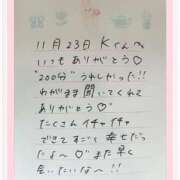 11月23日 Kくんへ
いつもありがとう♡
"200分" うれしかった!!
わがまま聞いてくれて
ありがとう♡
たくさんイチャイチャ
できてすごく幸せだっ
たよ〜♡゛また早く
会いたいな〜!!